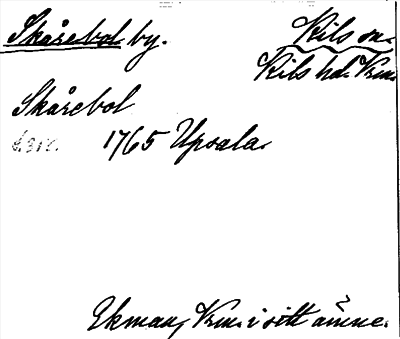 Skårebol by.
Kils sn.
Kils hd. Vrm.
Skårebol
1765 Upsala.
Ekman, Vrm. i sitt ämne.